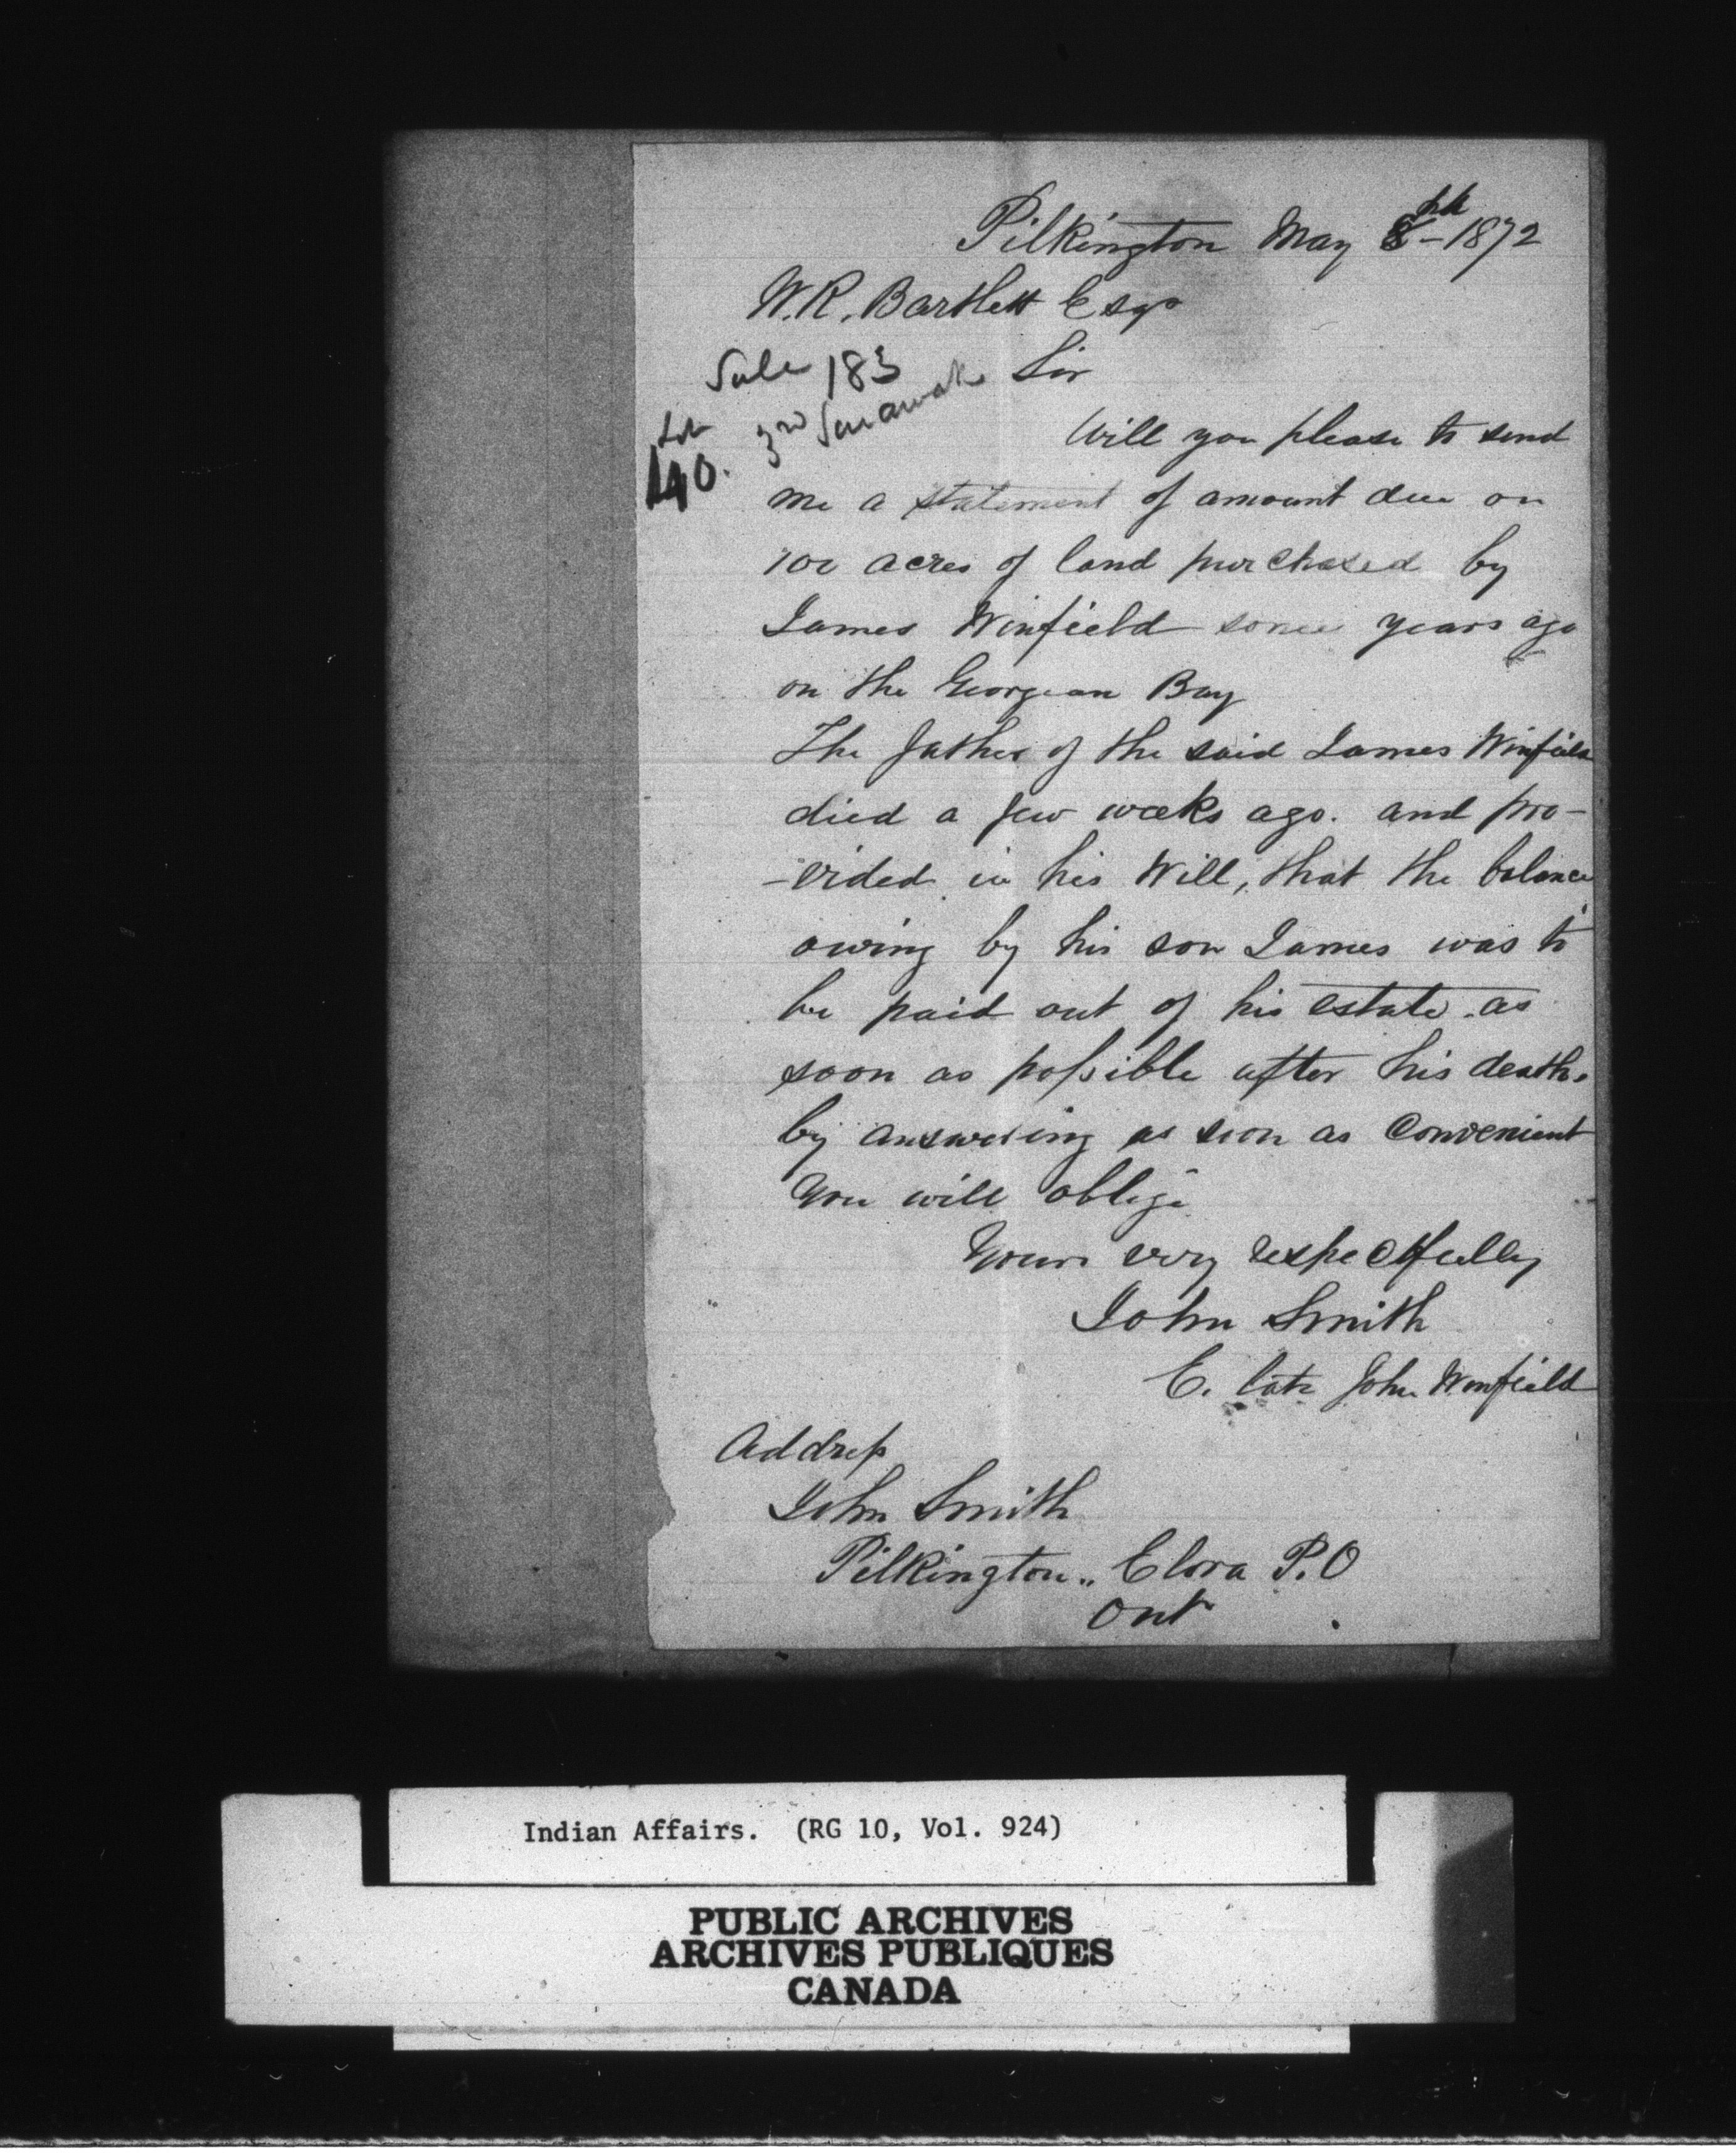 Pilkington May 8th - 1872
W. R. Bartlett Esqr
Sale 183
3rd Sarawak
Lot
40.
Sir
Will you please to send
me a statement of amount due on
100 acres of land purchased by
James Winfield some years ago
on the Georgean Bay
The father of the said James Winfield
died a few weeks ago. and pro-
-vided in his Will, that the balance
owing by his son James was to
be paid out of his estate as
soon as possible after his death.
by answering as soon as Convenient
You will oblige
Yours very respectfully
John Smith
E. late John Winfield
Address
John Smith
Pilkington.. Elora P.O
Ont
Indian Affairs. (RG 10, Vol. 924)
PUBLIC ARCHIVES
ARCHIVES PUBLIQUES
CANADA